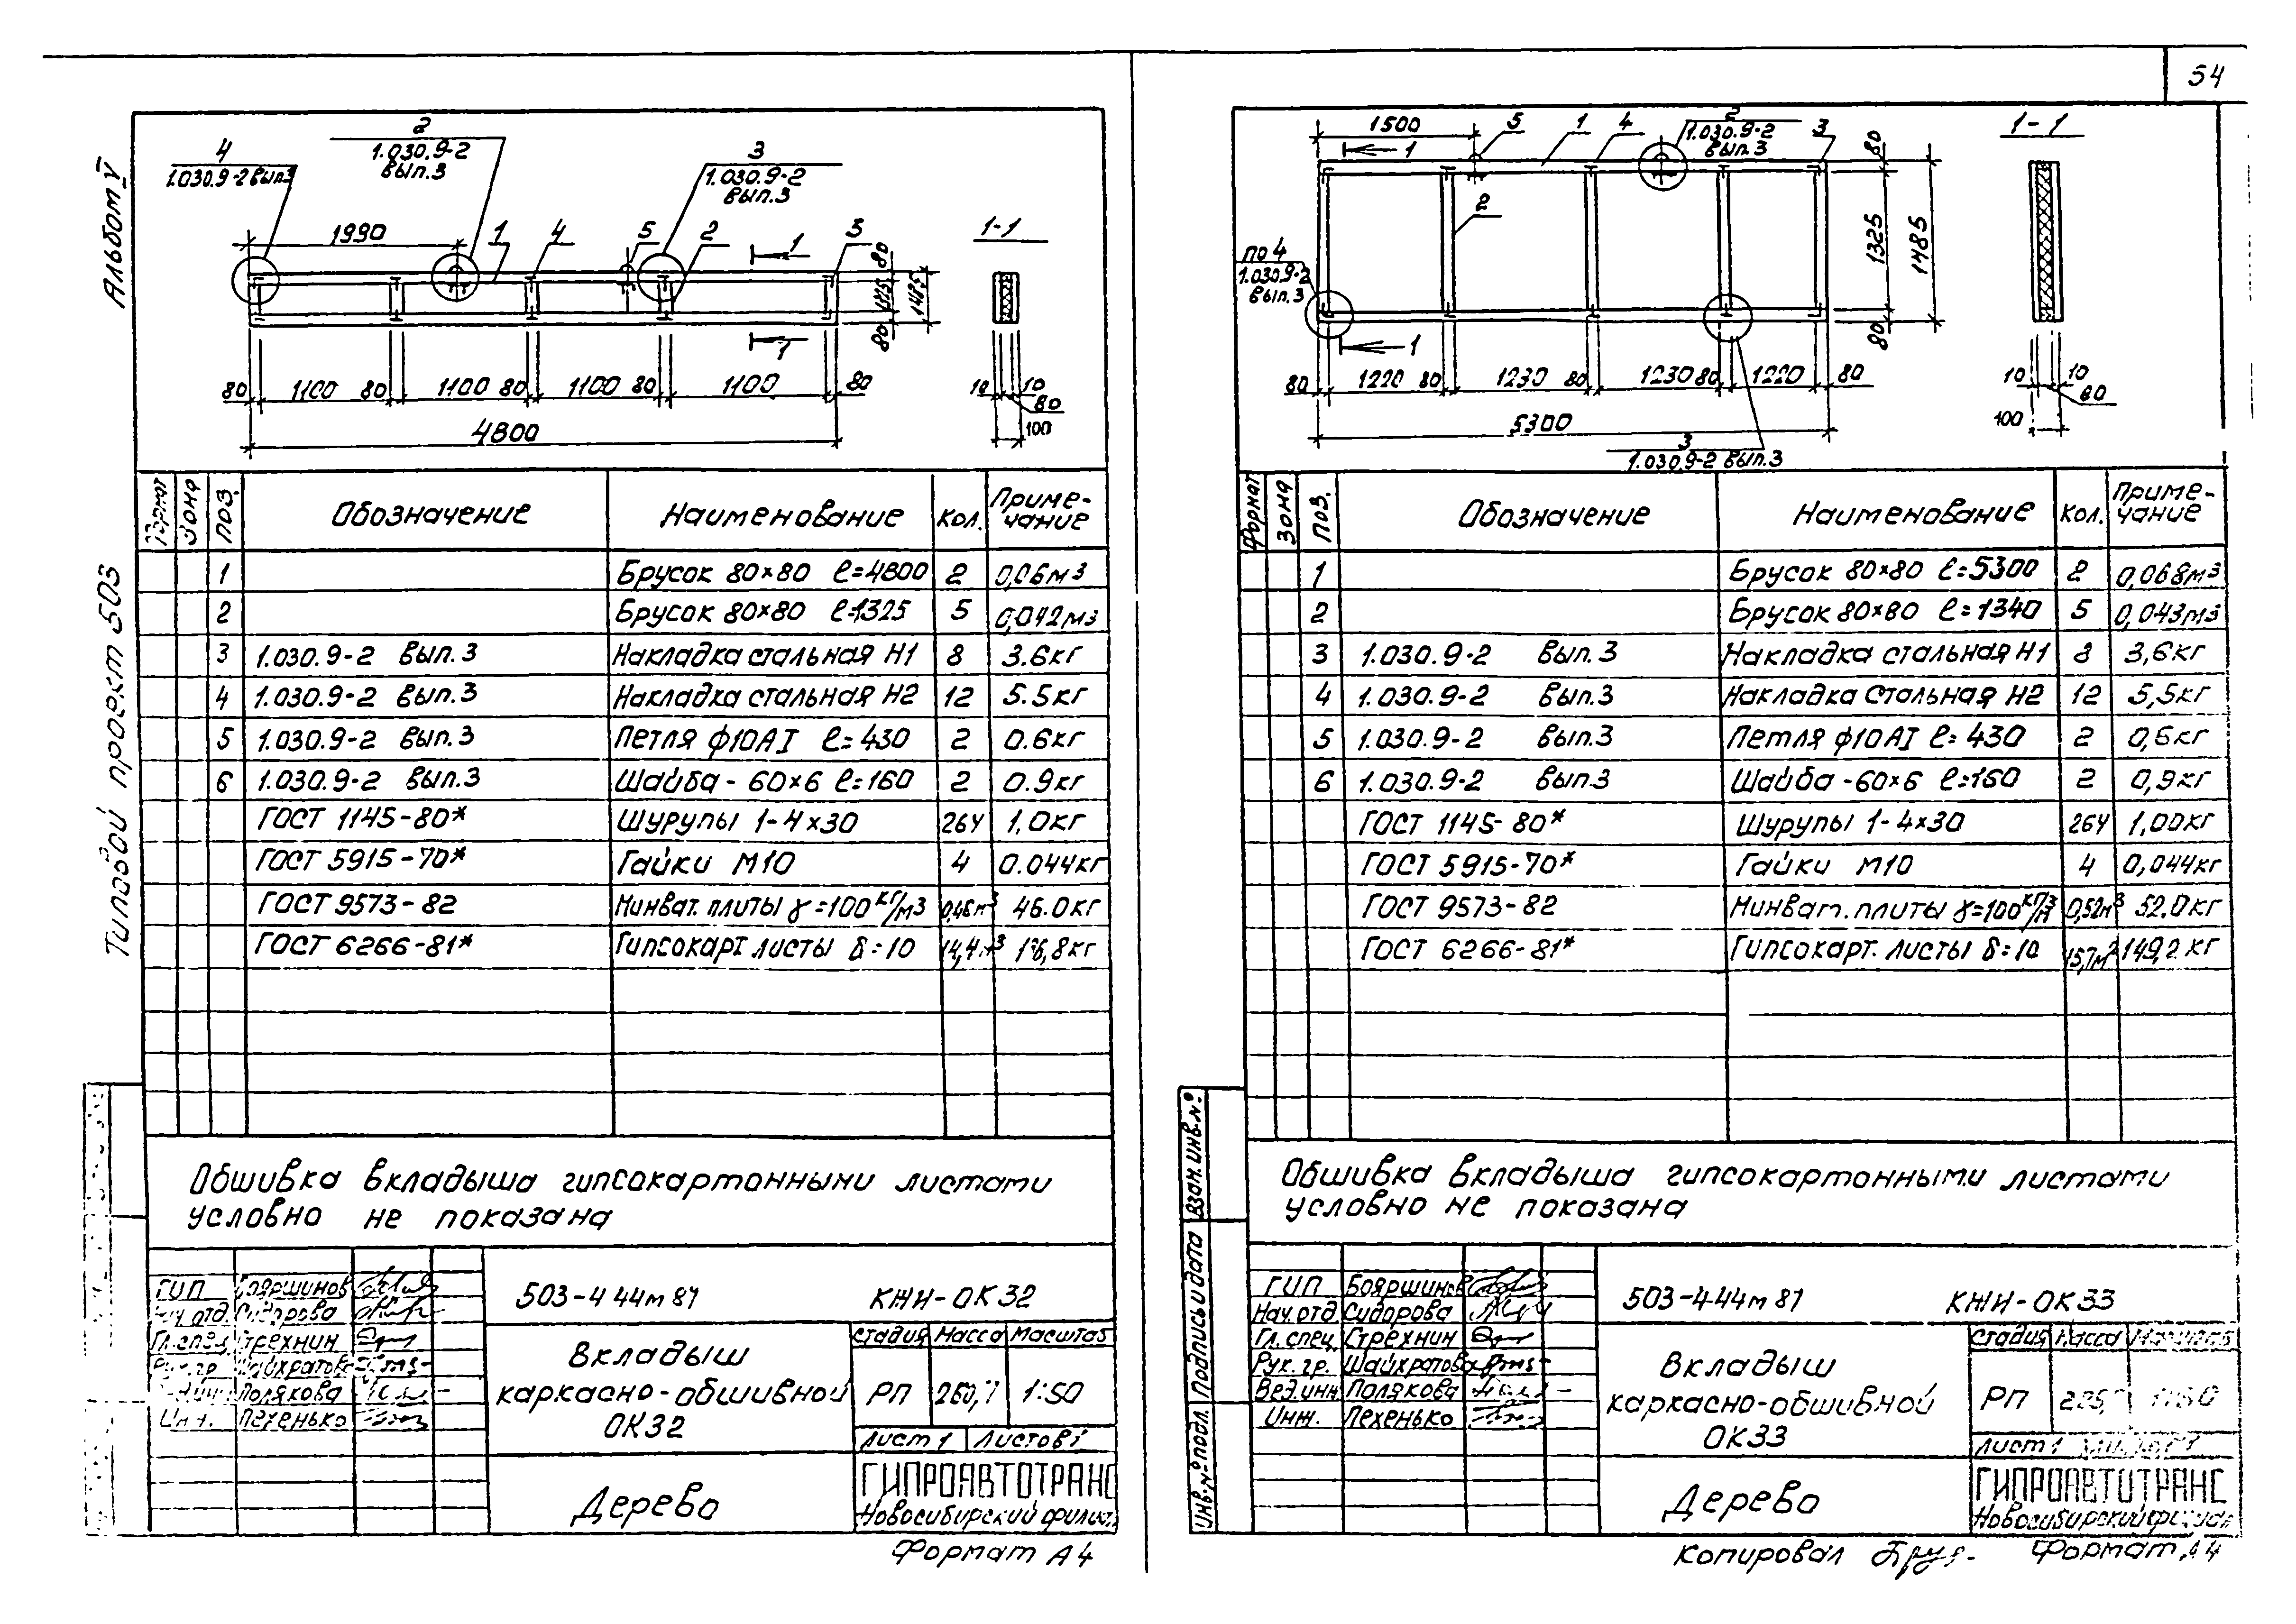 54
Альбом V
Типовой проект 503
4
1.030.9-2 вып.3
2
1.030.9-2
вып.3
3
1.030.9-2
вып.3
1990
1
4
5
2
1
3
1-1
80
1325
1485
80
1
80 1100 80 1100 80 1100 80 1100 80
4800
10 10
80
100
Формат
Зона
Поз.
Обозначение
Наименование
Кол.
Приме-
чание
1 Брусок 80×80 ℓ=4800 2 0,06м3
2 Брусок 80×80 ℓ=1325 5 0,042м3
3 1.030.9-2 вып.3 Накладка стальная Н1 8 3.6кг
4 1.030.9-2 вып.3 Накладка стальная Н2 12 5.5кг
5 1.030.9-2 вып.3 Петля ф10АI ℓ=430 2 0.6кг
6 1.030.9-2 вып.3 Шайба - 60×6 ℓ=160 2 0.9кг
ГОСТ 1145-80* Шурупы 1-4×30 264 1,0кг
ГОСТ 5915-70* Гайки М10 4 0.044кг
ГОСТ 9573-82 Минват. плиты γ=100кг/м3 0,46м3 46.0кг
ГОСТ 6266-81* Гипсокарт листы δ=10
Обшивка вкладыша гипсокартонными листами
условно не показана
ГИП Бояршинов
Нач.отд. Сидорова
Гл.спец. Стрехнин
Рук.гр. Шайхратова
Полякова
Инж. Пехенько
503-4 44м 87 КЖИ-ОК32
Вкладыш
каркасно-обшивной
ОК32
Стадия Масса Масштаб
РП 260,7 1:50
Лист 1 Листов 1
Дерево
ГИПРОАВТОТРАНС
Новосибирский филиал
Формат А4
1500
5
1
4
2
1.030.9-2
вып.3
3
1-1
1
2
по 4
1.030.9-2
вып.3
1
80
1325
1485
80
80 1220 80 1230 80 1230 80 1220 80
5300
3
1.030.9-2 вып.3
10 10
80
100
Формат
Зона
Поз.
Обозначение
Наименование
Кол.
Приме-
чание
1 Брусок 80×80 ℓ=5300 2 0,068м3
2 Брусок 80×80 ℓ=1340 5 0,043м3
3 1.030.9-2 вып.3 Накладка стальная Н1 8 3,6кг
4 1.030.9-2 вып.3 Накладка стальная Н2 12 5,5кг
5 1.030.9-2 вып.3 Петля ф10АI ℓ=430 2 0,6кг
6 1.030.9-2 вып.3 Шайба -60×6 ℓ=160 2 0,9кг
ГОСТ 1145-80* Шурупы 1-4×30 264 1,00кг
ГОСТ 5915-70* Гайки М10 4 0,044кг
ГОСТ 9573-82 Минват. плиты γ=100кг/м3 0,52м3 52.0кг
ГОСТ 6266-81* Гипсокарт. листы δ=10 15,7м2 149,2кг
Обшивка вкладыша гипсокартонными листами
условно не показана
Взам.инв.№
Подпись и дата
Инв.№ подл.
ГИП Бояршинов
Нач.отд Сидорова
Гл.спец Стрехнин
Рук.гр. Шайхратова
Вед.инж Полякова
Инж. Пехенько
503-4-44м 87 КЖИ-ОК33
Вкладыш
каркасно-обшивной
ОК33
Стадия Масса Масштаб
РП
Лист 1
Дерево
ГИПРОАВТОТРАНС
Новосибирский филиал
Копировал Формат А4